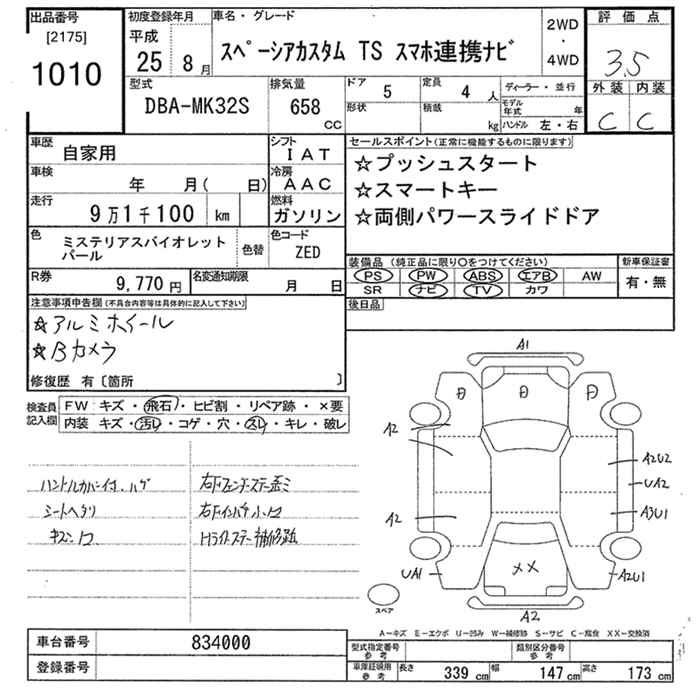 出品番号
[2175]
1010
初度登録年月
平成
25 8月
車名・グレード
スペーシアカスタム TS スマホ連携ナビ
2WD
・
4WD
評価点
3.5
外装 内装
C C
型式
DBA-MK32S
排気量
658
CC
ドア 5
形状
定員 4 人
積載 kg
ディーラー・並行
モデル年式 年
ハンドル 左・右
車歴 自家用
シフト
IAT
車検 年 月( 日)
冷房
AAC
走行 9万1千100 km
燃料
ガソリン
色 ミステリアスバイオレット
パール
色替
色コード
ZED
R券 9,770円
名変通知期限 月 日
セールスポイント(正常に機能するものに限ります)
☆プッシュスタート
☆スマートキー
☆両側パワースライドドア
装備品 (純正品に限り○をつけてください)
PS PW ABS エアB AW
SR ナビ TV カワ
新車保証書
有・無
後日品
注意事項申告欄(不具合内容等は具体的に記入して下さい)
☆アルミホイール
☆Bカメラ
修復歴 有〔箇所 〕
検査員
記入欄
FW キズ・飛石・ヒビ割・リペア跡・×要
内装 キズ・汚レ・コゲ・穴・スレ・キレ・破レ
ハンドルカバー付、ハゲ
シートヘタリ
右Fフェンダーステー歪ミ
右Fインパネ小凹
Hライトステー補修跡
A1
日 日 日
A2
A2U2
UA2
A2
A3U1
UA1
××
A2U1
スペア
A2
A-キズ E-エクボ U-凹み W-補修跡 S-サビ C-腐食 XX-交換済
車台番号 834000
登録番号
型式指定番号
参考
類別区分番号
参考
車庫証明用
参考
長さ 339 cm 幅 147 cm 高さ 173 cm